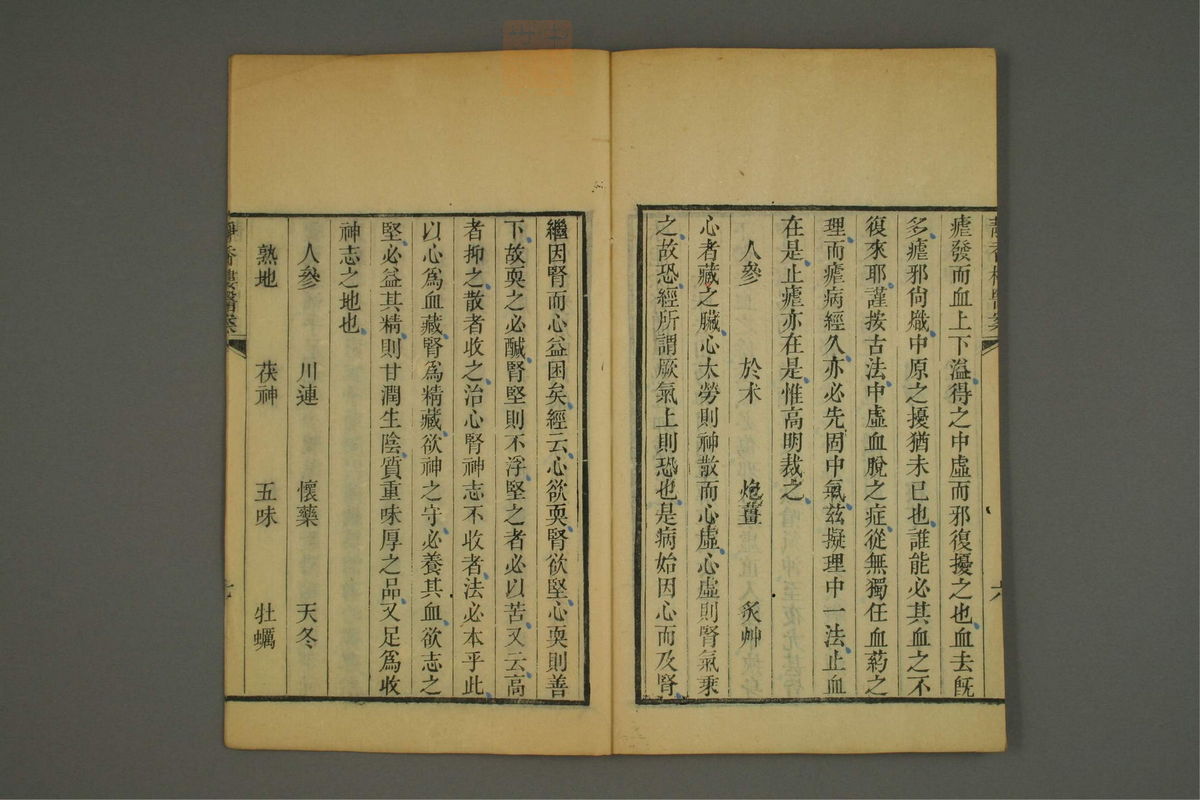 瘧發而血上下溢得之中虛而邪復擾之也血去旣
多瘧邪尙熾中原之擾猶未已也誰能必其血之不
復來耶謹按古法中虛血脫之症從無獨任血葯之
理而瘧病經久亦必先固中氣茲擬理中一法止血
在是止瘧亦在是惟高明裁之
人參 於朮 炮薑 炙艸
心者藏之臟心太勞則神散而心虛心虛則腎氣乘
之故恐經所謂厥氣上則恐也是病始因心而及腎
繼因腎而心益困矣經云心欲耎腎欲堅心耎則善
下故耎之必醎腎堅則不浮堅之者必以苦又云高
者抑之散者收之治心腎神志不收者法必本乎此
以心爲血藏腎爲精藏欲神之守必養其血欲志之
堅必益其精則甘潤生陰質重味厚之品又足爲收
神志之地也
人參 川連 懷藥 天冬
熟地 茯神 五味 牡蠣
靜香樓醫案